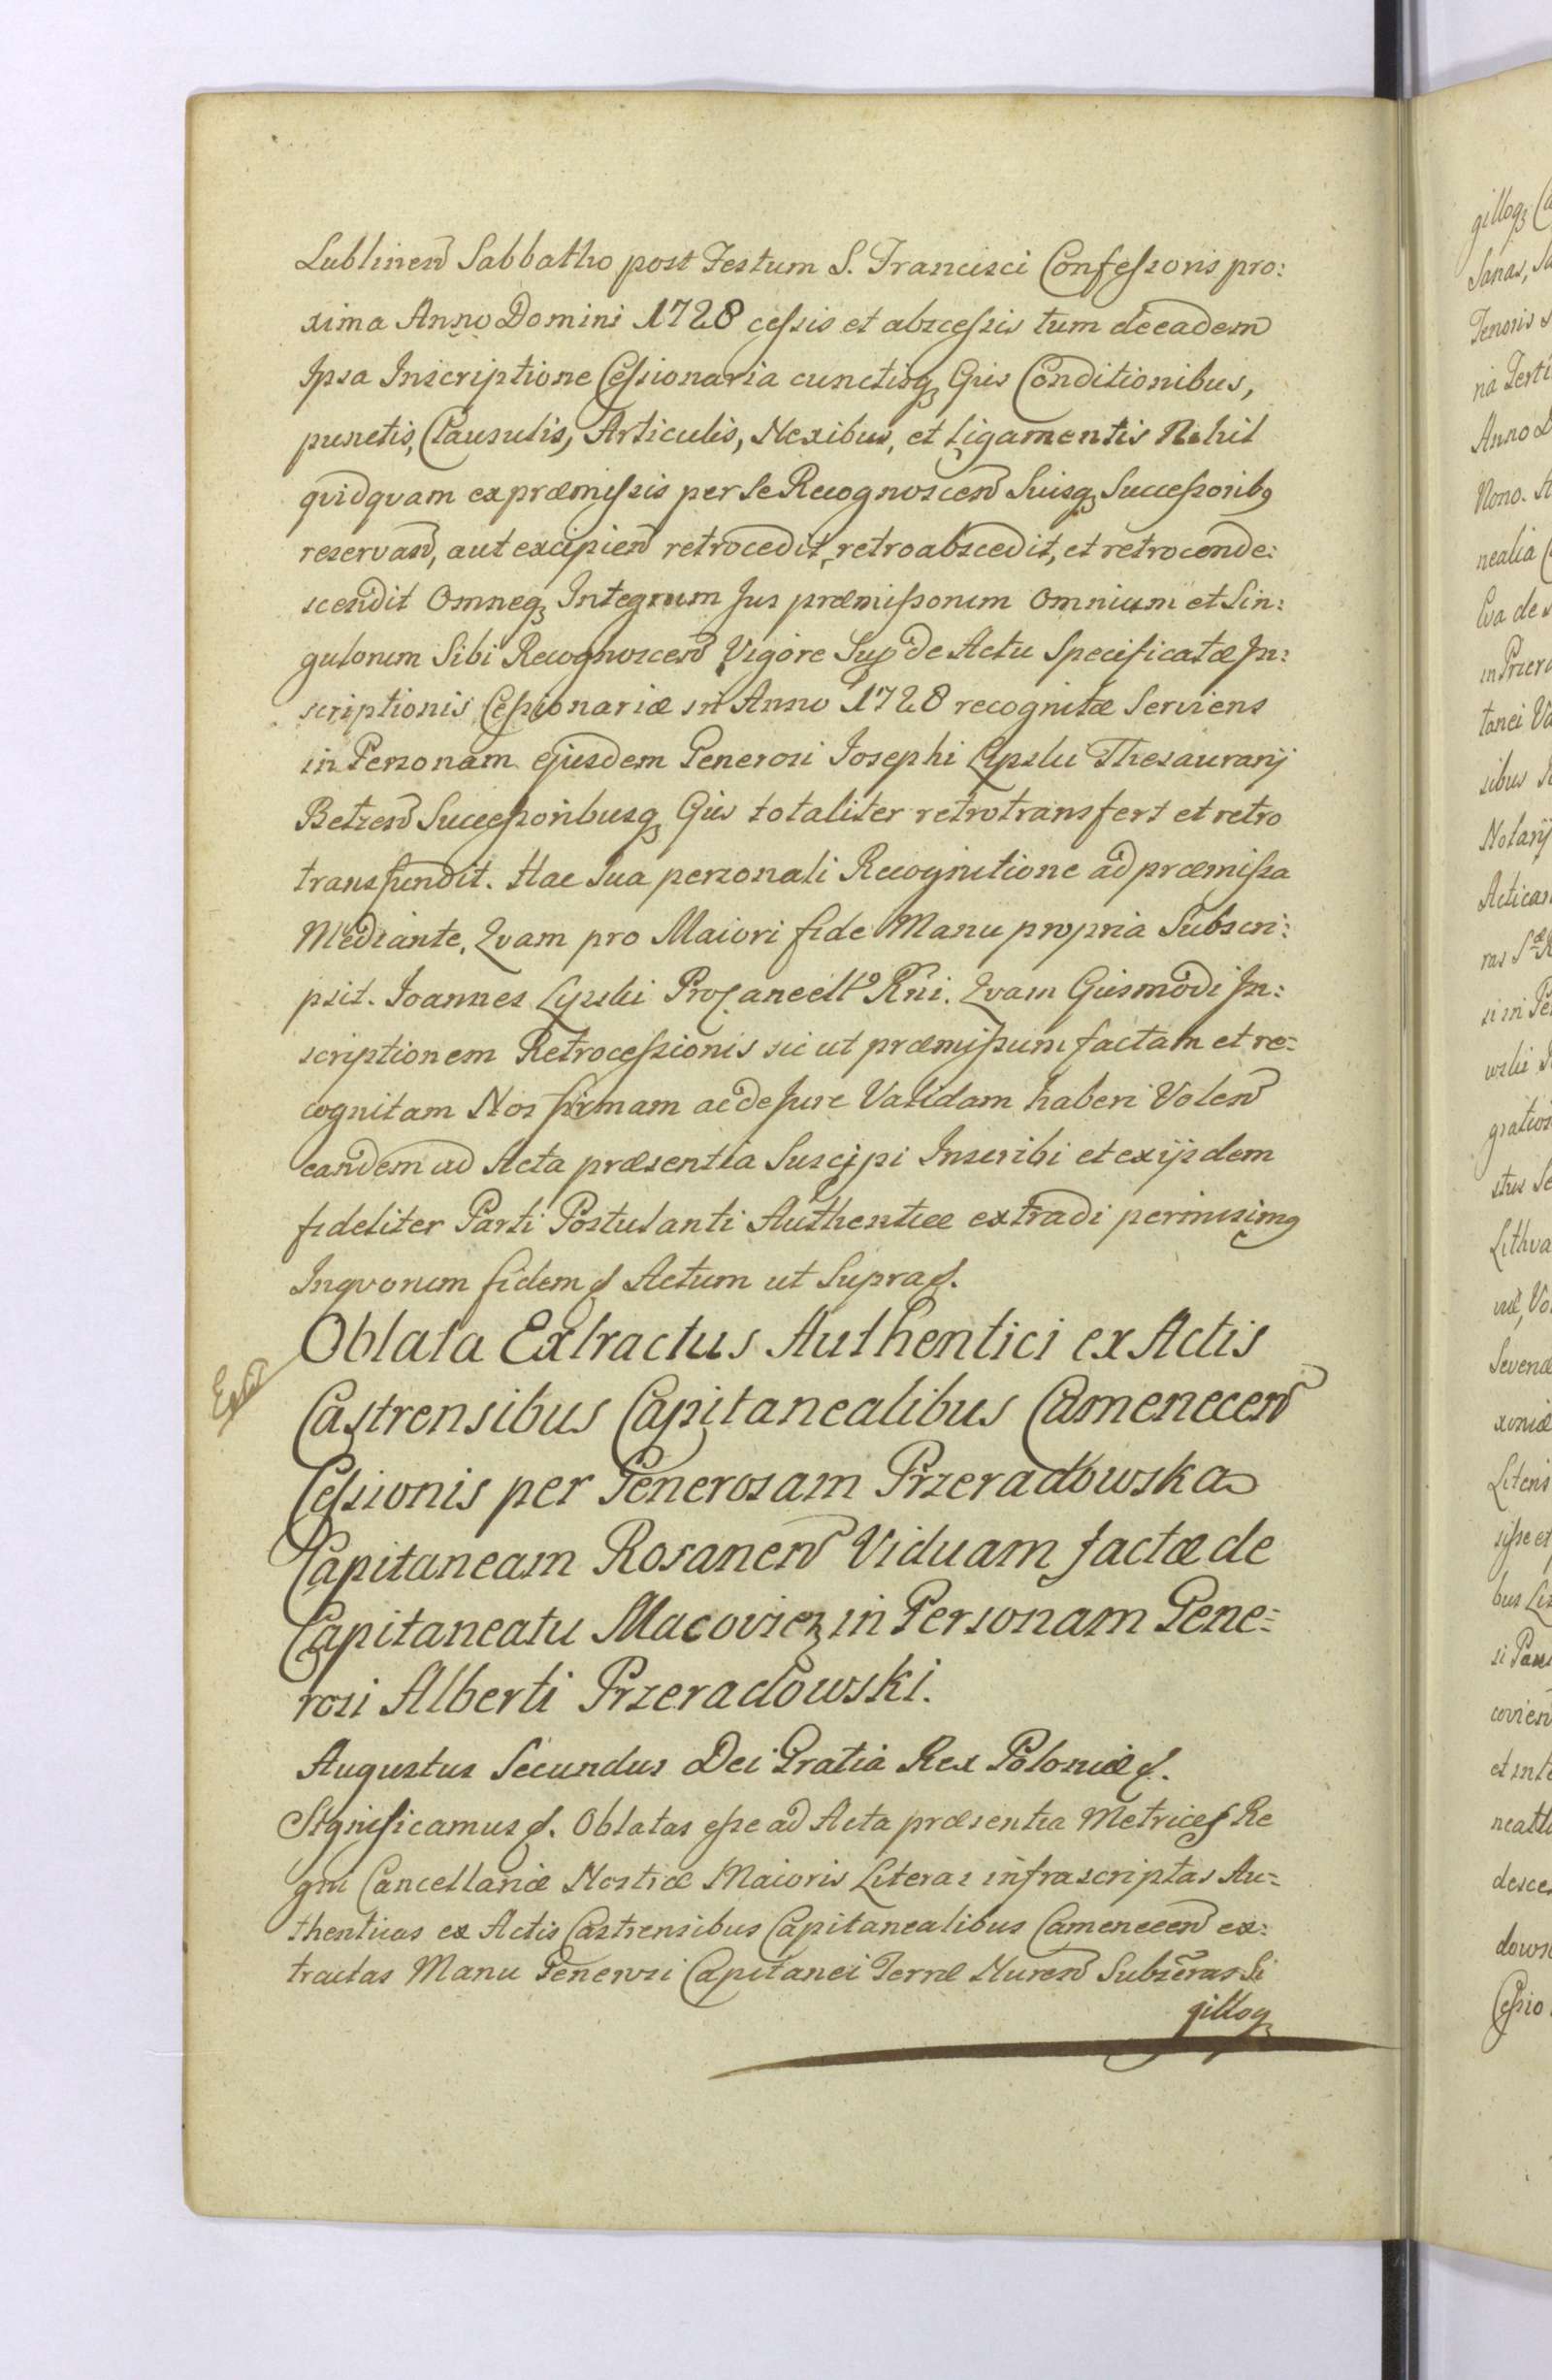 Lublinen Sabbatho post Festum S. Francisci Confessoris pro:
xima Anno Domini 1728 cessis et abscessis tum de eadem
Ipsa Inscriptione Cessionaria cunctisq Ejus Conditionibus,
punctis, Clausulis, Articulis, Nexibus, et Ligamentis Nihil
qvidqvam ex præmissis per se Recognoscen Suisq Successoribꝰ
reservan, aut excipien retrocedit, retroabscedit, et retroconde:
scendit Omneq Integrum Jus præmissorum Omnium et Sin:
gulorum Sibi Recognoscen Vigore Sup de Actu Specificatæ In:
scriptionis Cessionariæ in Anno 1728 recognitæ Serviens
in Personam ejusdem Generosi Josephi Lipski Thesaurarij
Betzen Successoribusq Ejus totaliter retrotransfert et retro
transfundit. Hac Sua personali Recognitione ad præmissa
Mediante, Qvam pro Maiori fide Manu propria Subscri:
psit. Joannes Lipski Procancellꝰ Rni. Qvam Ejusmodi In:
scriptionem Retrocessionis sic ut præmissum factam et re:
cognitam Nos firmam ac de Jure Validam haberi Volen
eandem ad Acta præsentia Suscipi Inscribi et ex ijsdem
fideliter Parti Postulanti Authentice extradi permisimꝰ
In qvorum fidem &. Actum ut Supra &.
Oblata Extractus Authentici ex Actis
Castrensibus Capitanealibus Camenecen
Cessionis per Generosam Przeradowska
Capitaneam Rosanen Viduam factæ de
Capitaneatu Macoviez in Personam Gene:
rosi Alberti Przeradowski.
Augustus Secundus Dei Gratia Rex Poloniæ &.
Significamus &. Oblatas esse ad Acta præsentia Metrices Re
gni Cancellariæ Nostræ Maioris Literas infrascriptas Au:
thenticas ex Actis Castrensibus Capitanealibus Camenecen ex:
tractas Manu Generosi Capitanei Terræ Nuren Subscras Si
gilloq